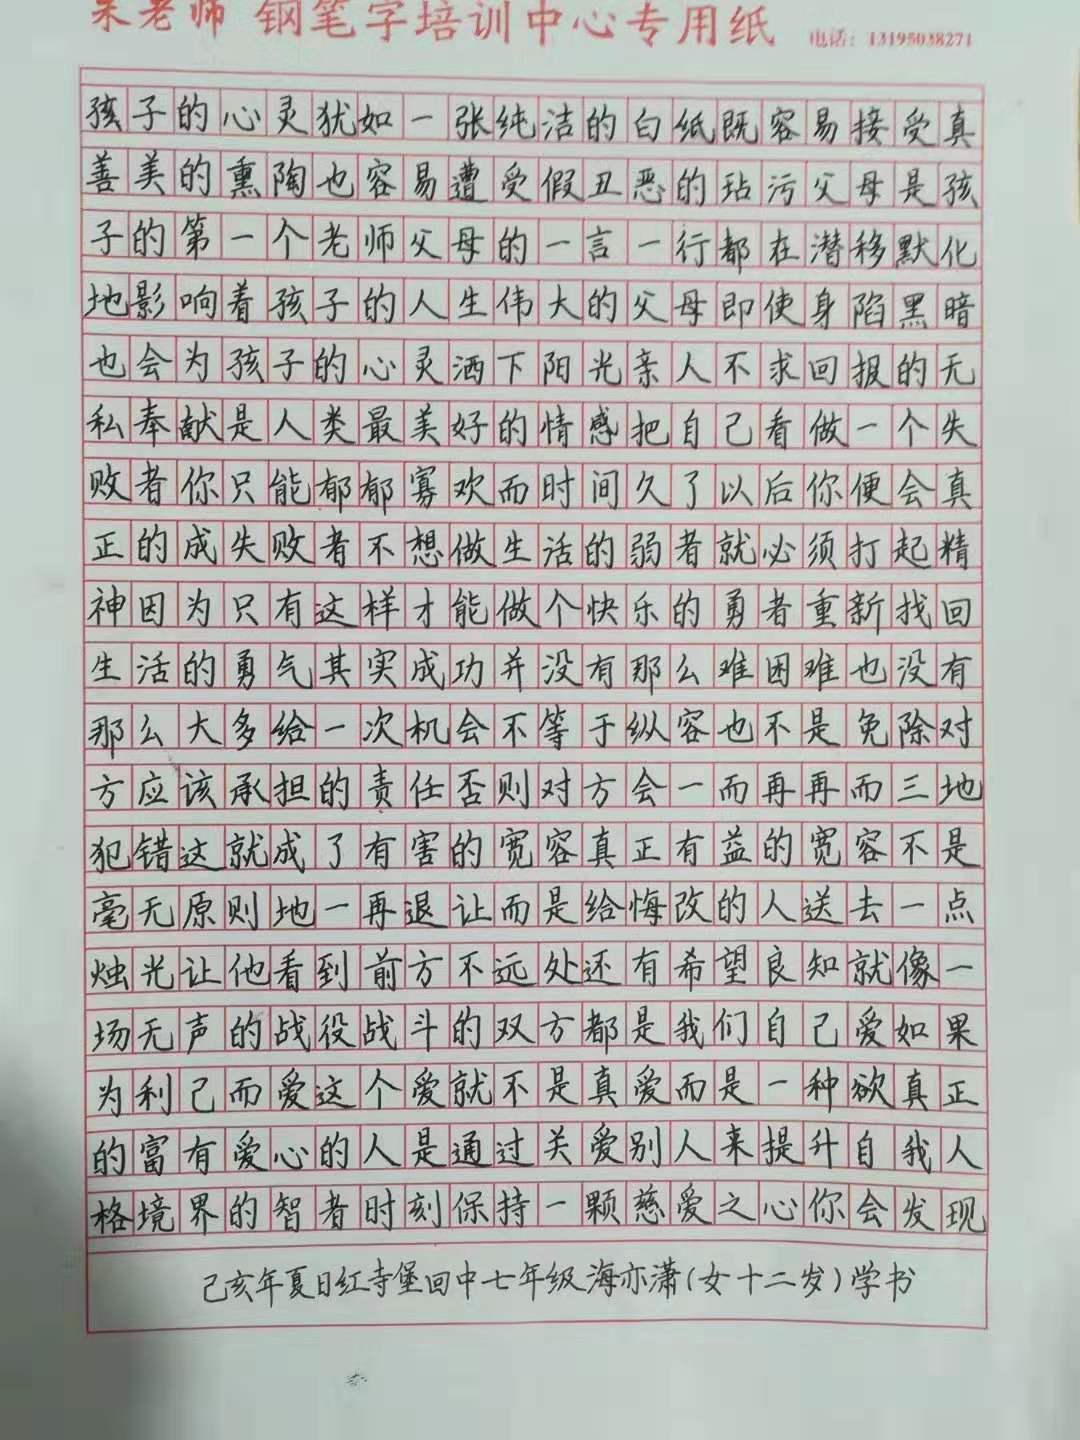 朱老师 钢笔字培训中心专用纸 电话：13195038271
孩子的心灵犹如一张纯洁的白纸既容易接受真
善美的熏陶也容易遭受假丑恶的玷污父母是孩
子的第一个老师父母的一言一行都在潜移默化
地影响着孩子的人生伟大的父母即使身陷黑暗
也会为孩子的心灵洒下阳光亲人不求回报的无
私奉献是人类最美好的情感把自己看做一个失
败者你只能郁郁寡欢而时间久了以后你便会真
正的成失败者不想做生活的弱者就必须打起精
神因为只有这样才能做个快乐的勇者重新找回
生活的勇气其实成功并没有那么难困难也没有
那么大多给一次机会不等于纵容也不是免除对
方应该承担的责任否则对方会一而再再而三地
犯错这就成了有害的宽容真正有益的宽容不是
毫无原则地一再退让而是给悔改的人送去一点
烛光让他看到前方不远处还有希望良知就像一
场无声的战役战斗的双方都是我们自己爱如果
为利己而爱这个爱就不是真爱而是一种欲真正
的富有爱心的人是通过关爱别人来提升自我人
格境界的智者时刻保持一颗慈爱之心你会发现
己亥年夏日红寺堡回中七年级海亦潇(女十二岁)学书